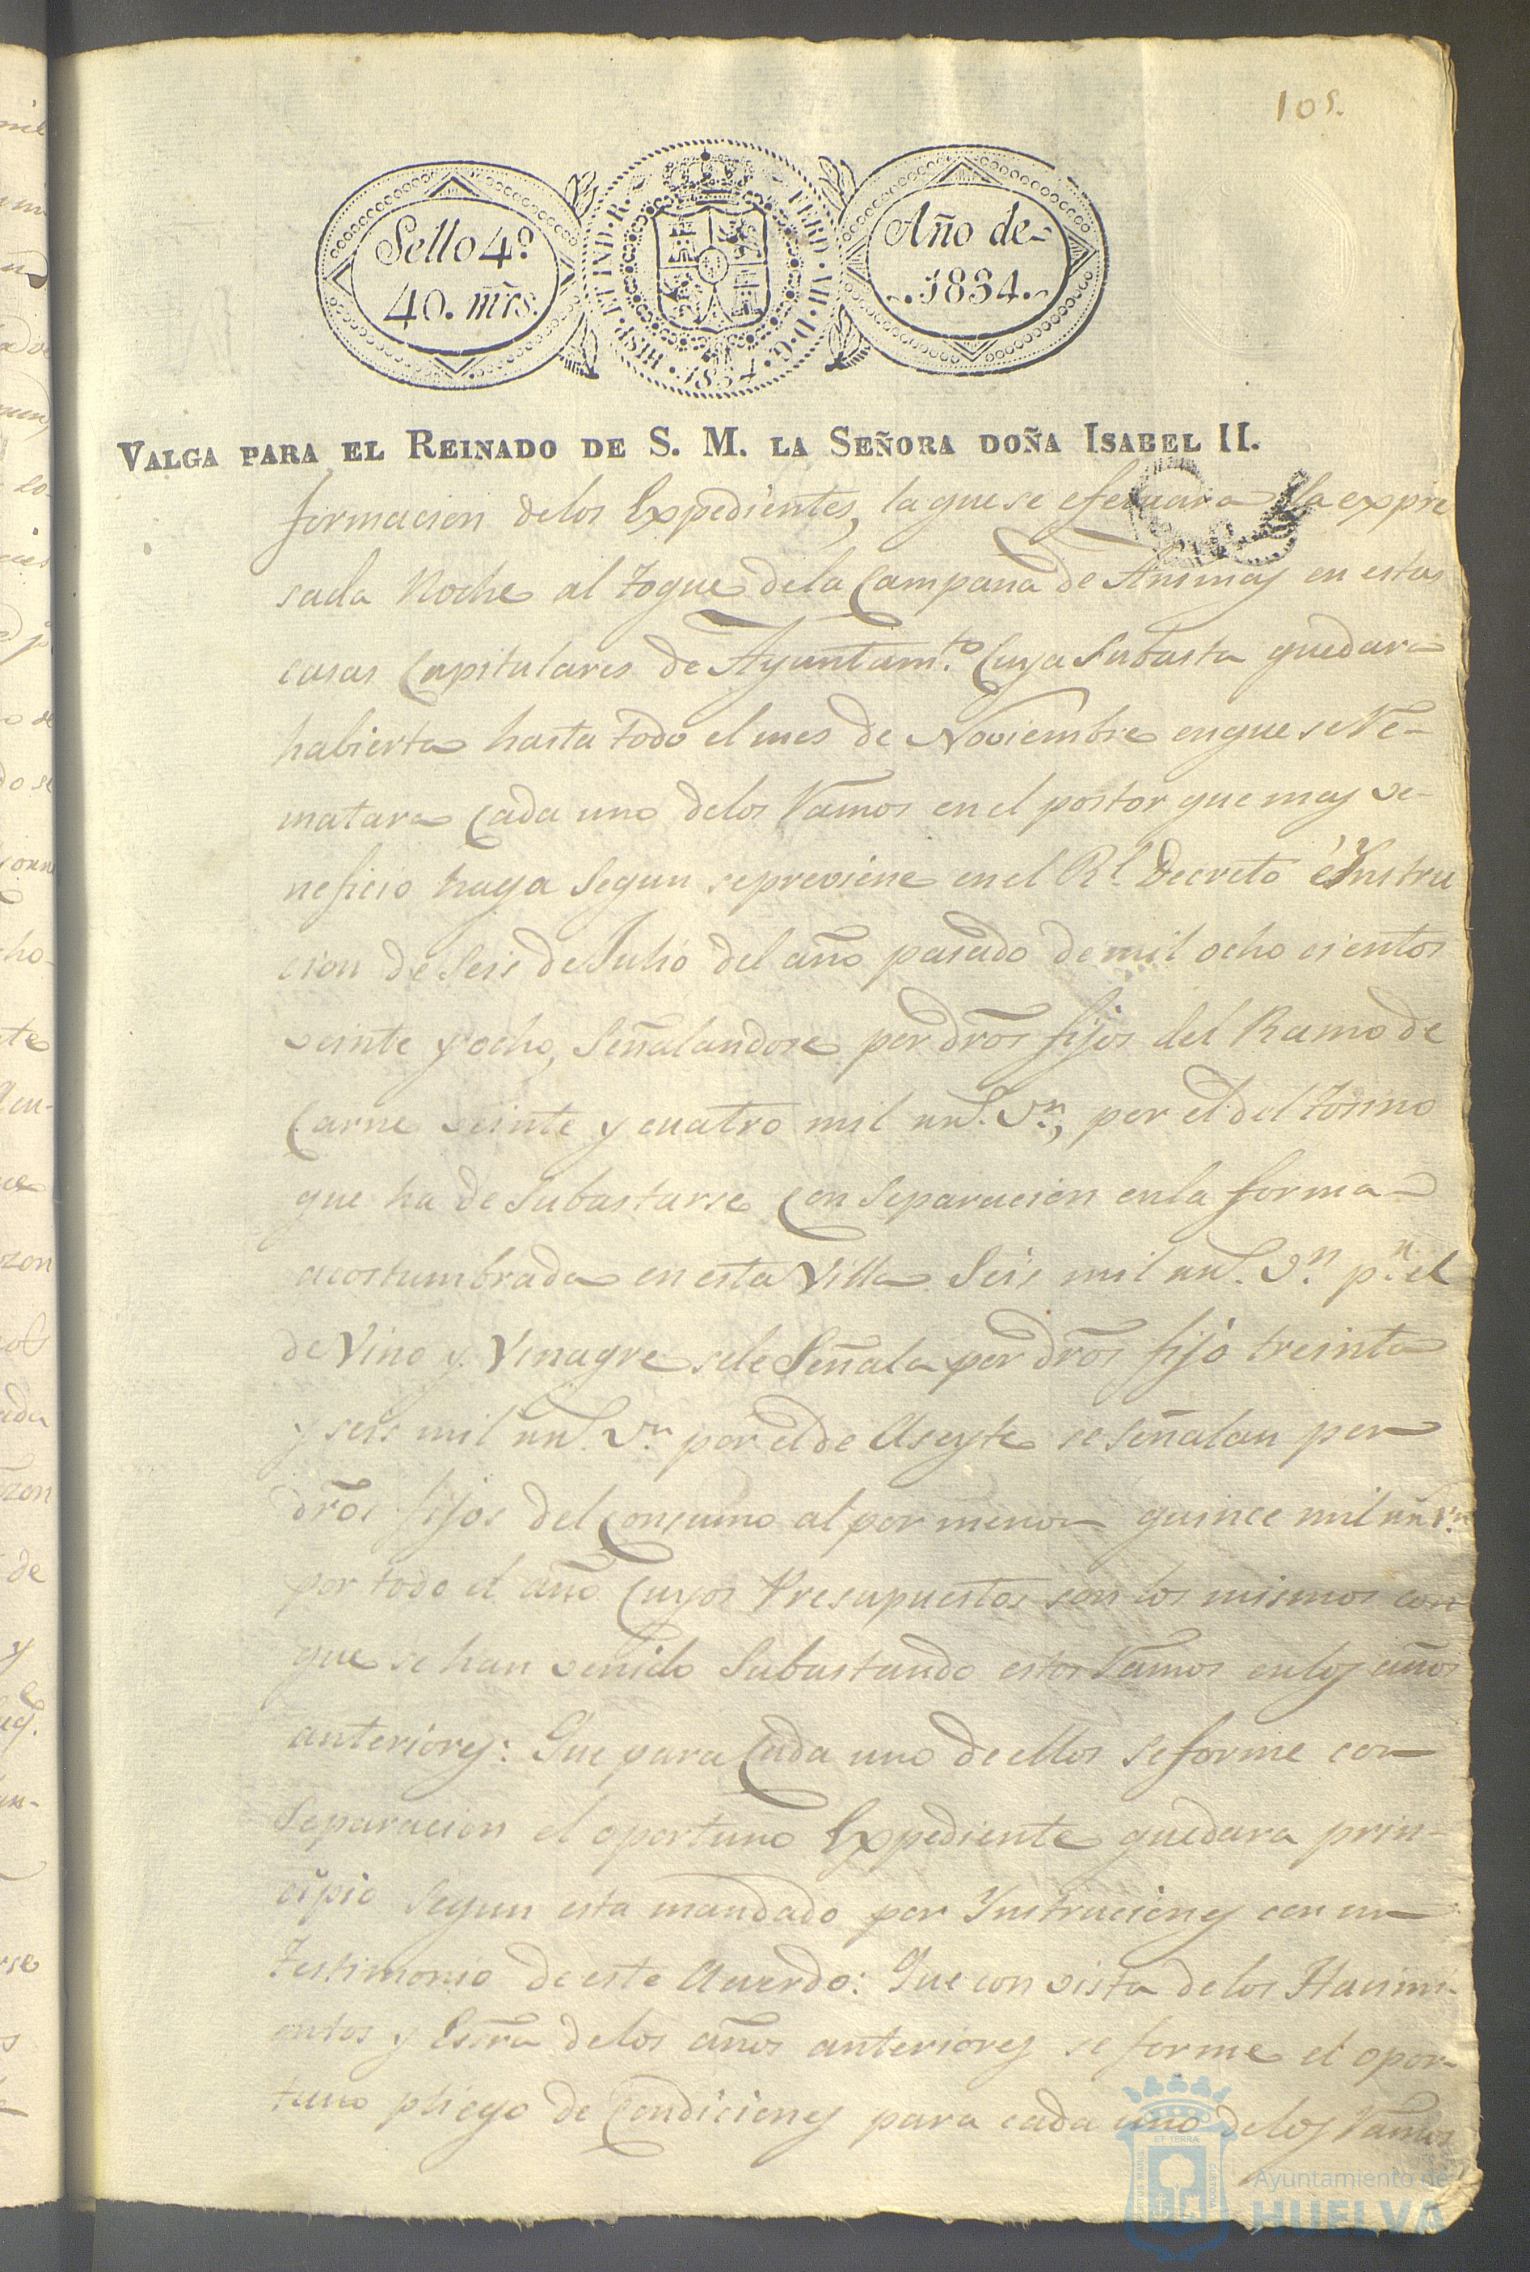 105.
Sello 4º
40. mrs.
HISP. ET IND. R. FERD. VII. D. G. 1834.
Año de
.1834.
VALGA PARA EL REINADO DE S. M. LA SEÑORA DOÑA ISABEL II.
formacion delos Expedientes, la que se efectuara la expre
sada Noche al toque dela Campana de Animas en estas
casas Capitulares de Ayuntamto. Cuya Subasta quedara
habierta hasta todo el mes de Noviembre en que se Re-
matara Cada uno delos Ramos en el postor que mas ve-
neficio haga Segun se previene en el Rl. Decreto é Ynstru
cion de Seis de Julio del año pasado de mil ocho cientos
veinte y ocho, Señalandose por dros fijos del Ramo de
Carne veinte y cuatro mil rrs. vn., por el del tosino
que ha de Subastarse Con Separacion en la forma
acostumbrada en esta Villa Seis mil rrs. vn. pr. el
de Vino y Vinagre sele Señala por dros fijo treinta
y seis mil rrs. vn. por el de Aseyte se señalan por
dros fijos del Consumo al por menor quince mil rrs vn.
por todo el año Cuyos Presupuestos son los mismos con
que se han venido Subastando estos Ramos en los años
anteriores: Que para Cada uno de ellos se forme con
Separacion el oportuno Expediente quedara prin-
cipio segun esta mandado por Ynstruciones con un
testimonio de este Acuerdo: Que con vista delos Hacimi-
entos y Escra delos años anteriores se forme el opor-
tuno pliego de Condiciones para cada uno delos Ramos
Ayuntamiento de
HUELVA